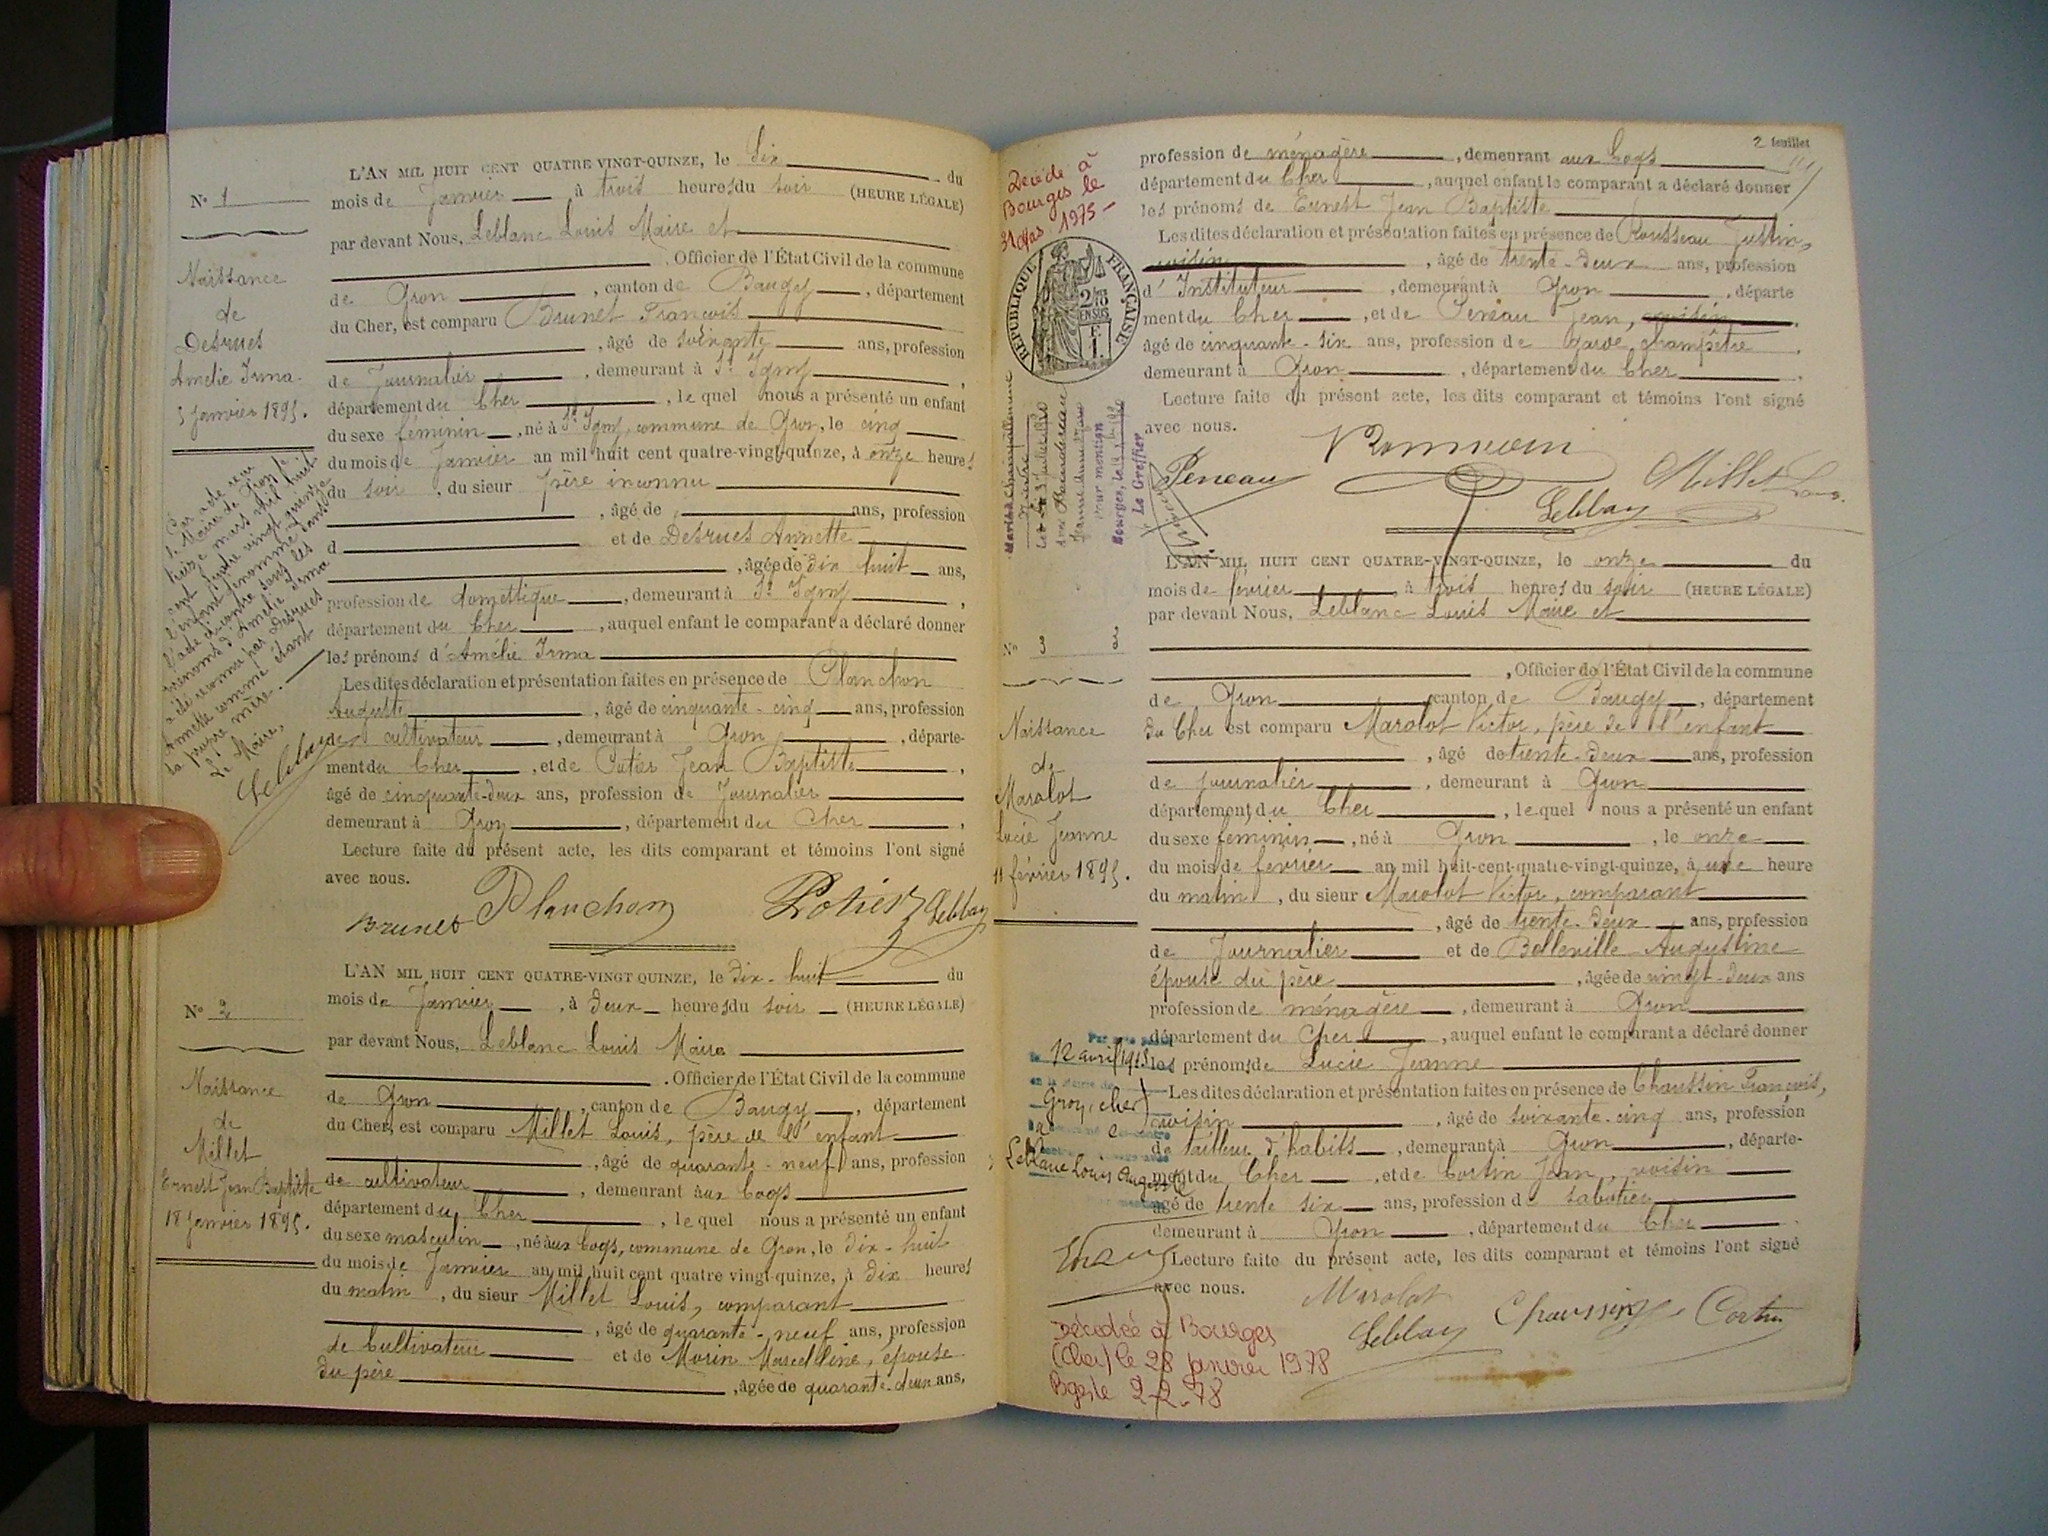 L'AN MIL HUIT CENT QUATRE-VINGT-QUINZE, le Six du
N° 1
mois de Janvier à trois heures du soir (HEURE LÉGALE)
par devant Nous, Leblanc Louis Maire et
, Officier de l'État Civil de la commune
de Gron, canton de Baugy, département
du Cher, est comparu Brunet François
, âgé de soixante ans, profession
de Journalier, demeurant à St Igny,
département du Cher, lequel nous a présenté un enfant
du sexe féminin, né à St Igny, commune de Gron, le cinq
du mois de Janvier an mil huit cent quatre-vingt-quinze, à onze heures
du soir, du sieur père inconnu
, âgé de ans, profession
d et de Desrues Annette
, âgée de dix huit ans,
profession de domestique, demeurant à St Igny,
département du Cher, auquel enfant le comparant a déclaré donner
les prénoms d'Amélie Irma
Les dites déclaration et présentation faites en présence de Planchon
Auguste, âgé de cinquante-cinq ans, profession
de cultivateur, demeurant à Gron, départe-
ment du Cher, et de Potier Jean Baptiste,
âgé de cinquante-deux ans, profession de Journalier
demeurant à Gron, département du Cher,
Lecture faite du présent acte, les dits comparant et témoins l'ont signé
avec nous.
Brunet Planchon Potier Leblanc
Naissance
de
Desrues
Amélie Irma.
5 Janvier 1895.
Par acte reçu
le Maire de Gron le
treize mars mil huit
cent quatre vingt quinze
l'enfant dénommé dans
l'acte ci-contre sous les
prénoms d'Amélie Irma
a été reconnu par Desrues
Annette comme étant
sa propre mère.
Le Maire,
Leblanc
L'AN MIL HUIT CENT QUATRE-VINGT QUINZE, le dix-huit du
N° 2
mois de Janvier, à deux heures du soir (HEURE LÉGALE)
par devant Nous, Leblanc Louis Maire
, Officier de l'État Civil de la commune
de Gron, canton de Baugy, département
du Cher, est comparu Millet Louis, père de l'enfant
, âgé de quarante-neuf ans, profession
de cultivateur, demeurant aux Coqs
département du Cher, lequel nous a présenté un enfant
du sexe masculin, né aux Coqs, commune de Gron, le dix-huit
du mois de Janvier an mil huit cent quatre vingt-quinze, à dix heures
du matin, du sieur Millet Louis, comparant
, âgé de quarante-neuf ans, profession
de Cultivateur et de Morin Marcelline, épouse
du père, âgée de quarante-deux ans,
Naissance
de
Millet
Ernest Jean Baptiste
18 Janvier 1895.
2 feuillet
profession de ménagère, demeurant aux Coqs
département du Cher, auquel enfant le comparant a déclaré donner
les prénoms de Ernest Jean Baptiste
Les dites déclaration et présentation faites en présence de Rousseau Justin,
voisin, âgé de trente-deux ans, profession
d'Instituteur, demeurant à Gron, départe
ment du Cher, et de Peneau Jean, voisin,
âgé de cinquante-six ans, profession de garde champêtre,
demeurant à Gron, département du Cher.
Lecture faite du présent acte, les dits comparant et témoins l'ont signé
avec nous.
Peneau Millet Louis
Leblanc
Décédé à
Bourges le
31 Mars 1975
RÉPUBLIQUE FRANÇAISE
Pour mention
Le Greffier
L'AN MIL HUIT CENT QUATRE-VINGT-QUINZE, le onze du
mois de février, à trois heures du soir (HEURE LÉGALE)
par devant Nous, Leblanc Louis Maire et
N° 3 3
, Officier de l'État Civil de la commune
de Gron, canton de Baugy, département
du Cher est comparu Marolot Victor, père de l'enfant
, âgé de trente-deux ans, profession
de journalier, demeurant à Gron
département du Cher, lequel nous a présenté un enfant
du sexe féminin, né à Gron, le onze
du mois de février an mil huit-cent-quatre-vingt-quinze, à une heure
du matin, du sieur Marolot Victor, comparant
, âgé de trente-deux ans, profession
de Journalier et de Belleville Augustine
épouse du père, âgée de vingt-deux ans
profession de ménagère, demeurant à Gron
département du Cher, auquel enfant le comparant a déclaré donner
les prénoms de Lucie Jeanne
Les dites déclaration et présentation faites en présence de Chaussin François,
voisin, âgé de soixante-cinq ans, profession
de tailleur d'habits, demeurant à Gron, départe-
ment du Cher, et de Cortin Jean, voisin
âgé de trente six ans, profession de sabotier
demeurant à Gron, département du Cher.
Lecture faite du présent acte, les dits comparant et témoins l'ont signé
avec nous.
Marolot Chaussin Cortin
Leblanc
Naissance
de
Marolot
Lucie Jeanne
11 février 1895.
12 avril 1913
Gron, Cher
Leblanc Louis Auguste
Décédée à Bourges
(Cher) le 28 janvier 1978
Bges le 2-2-78